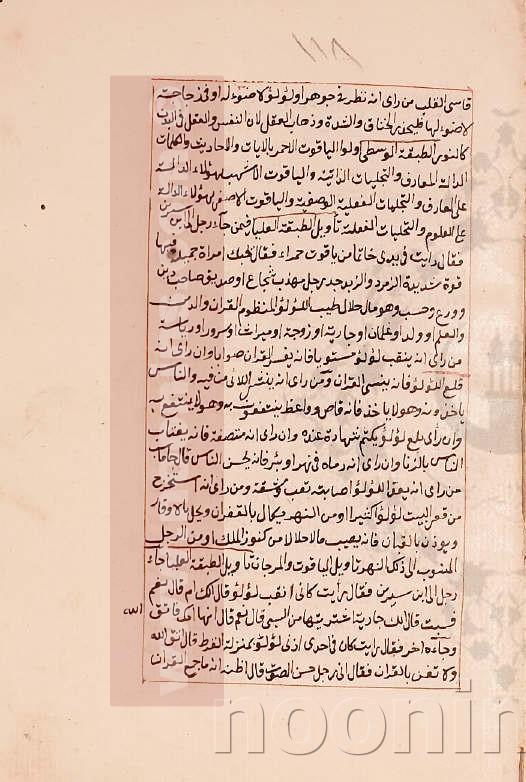 ١١٨
قاسي القلب من راى انه نظر في جوهر او لؤلؤ لا ضوء له او في زجاجة
لا ضوء لها فليحذر الخناق والشدة وذهاب العقل لان النفس والعقل في البدن
كالنور الطبقة الوسطى ولو الياقوت الاحمر بالايات والاحاديث والكلمات
الدالة المعارف والتجليات الذاتية والياقوت الاشهب بهؤلاء الدالة
على المعارف والتجليات الفعلية الوصفية والياقوت الاصفر بهؤلاء الدالة
على العلوم والتجليات الفعلية تاويل الطبقة العليا فمن جاء رجل الى ابن سيرين
فقال رايت في يدى خاتما من ياقوت حمراء فقال لك امراة جميلة فيها
قوة شديدة الزمرد والزبرجد رجل مهذب شجاع او صديق صاحب دين
وورع وحسب وهو مال حلال طيب اللؤلؤ المنظوم القران والدين
والعلم او ولد او غلمان او جارية او زوجة او ميراث او سرور او رياسة
من راى انه يثقب لؤلؤ مستويا فانه يفسر القران صوابا وان راى انه
قلع اللؤلؤ فانه ينسى القران ومن راى انه ينثر اللالئ من فيه والناس
ياخذونه وهو لا ياخذ فانه قاص وواعظ ينتفعون به وهو لا ينتفع به
وان راى بلع لؤلؤ يكتم شهادة عنده وان راى انه متصفة فانه يغتاب
الناس بالزنا وان راى انه رماه في نهر او بئر فانه يحسن الناس قال جاماسب
من راى انه يبقي اللؤلؤ اصابته تعب ومشقة ومن راى انه استخرج
من قعر البيت لؤلؤا كثيرا او من النهر يكال بالقفزان ويحمل بالاوقار
ويوزن بالقبان فانه يصيب مالا حلالا من كنوز الملك او من الرجل
المنسوب الى ذلك النهر تاويل الياقوت والمرجان تاويل الطبقة العليا جاء
رجل الى ابن سيرين فقال رايت كانى اثقب لؤلؤ قال الك ام قال نعم
قسبيت قال لك جارية اشتريتها من السبي قال نعم قال انها امك فاتق الله
وجاءه اخر فقال رايت كان في احدى اذنى لؤلؤ بمنزلة القرط قال اتق الله
ولا تغن بالقران فقال انى رجل حسن الصوت قال اظنه انه ما جمع القران
noonin